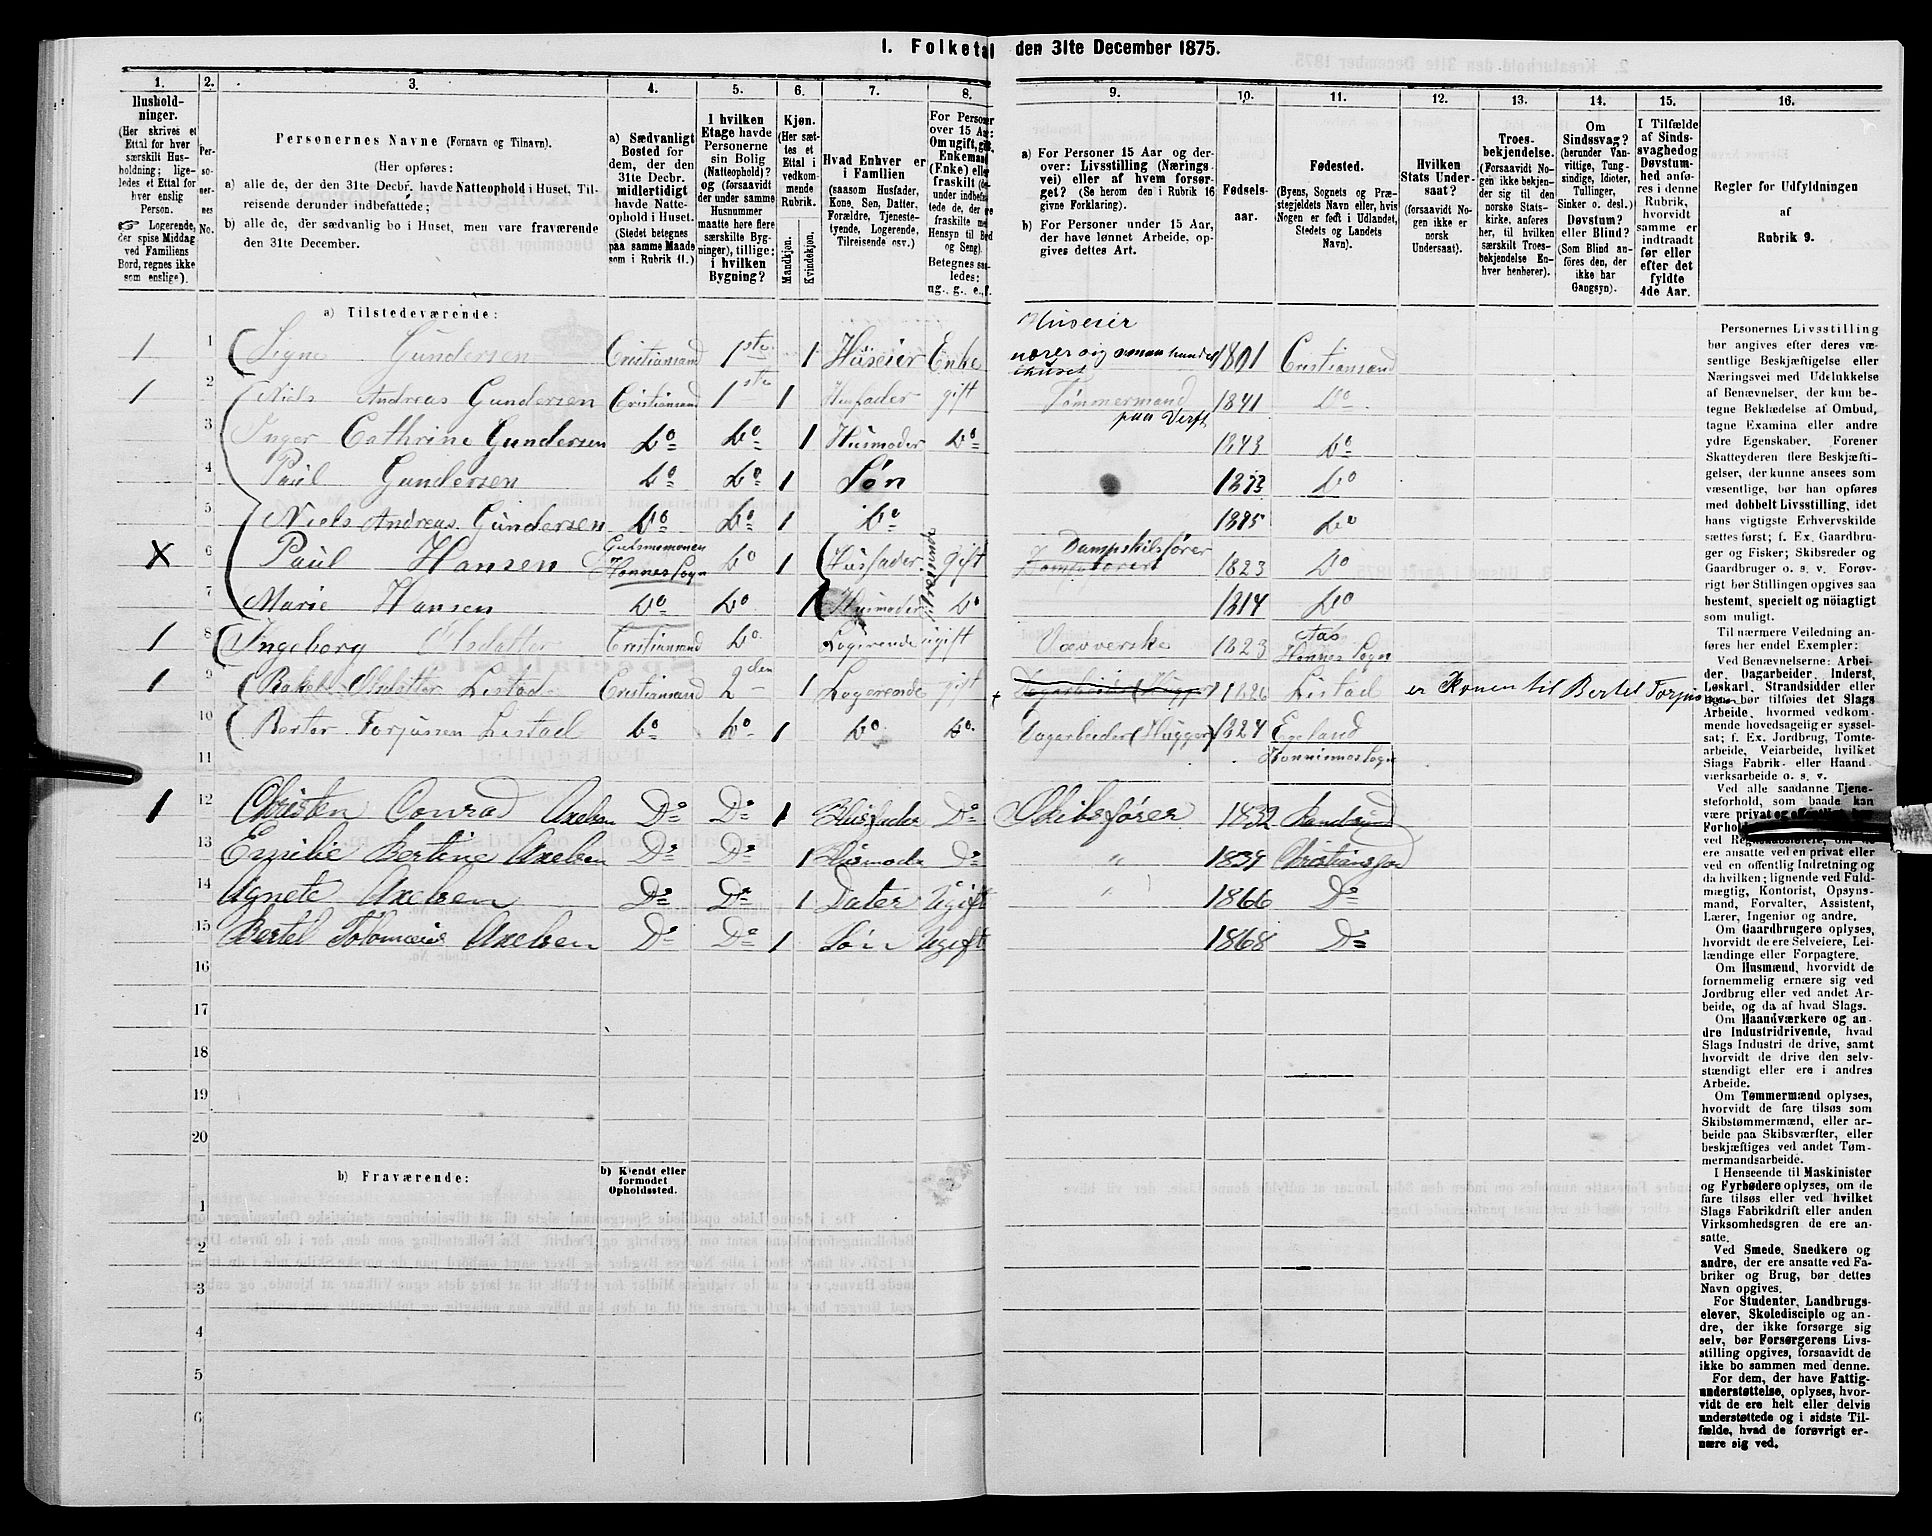 1. Folketal den 31te December 1875.
1. 2. 3. 4. 5. 6. 7. 8. 9. 10. 11. 12. 13. 14. 15. 16.
Husholdninger.
(Her skrives et
Ettal for hver
særskilt Husholdning;
ligeledes et Ettal for
hver enslig
Person.
☞ Logerende,
der spise Middag
ved Familiens
Bord, regnes ikke
som enslige).
Personernes No.
Personernes Navne (Fornavn og Tilnavn).
(Her opføres:
a) alle de, der den 31te Decbr. havde Natteophold i Huset, Tilreisende derunder indbefattede;
b) alle de, der sædvanlig bo i Huset, men vare fraværende
den 31te December.
a) Sædvanligt
Bosted for
dem, der den
31te Decbr.
midlertidigt
havde Natteophold i Huset.
(Stedet betegnes
paa samme Maade
som i Rubrik 11.)
I hvilken
Etage havde
Personerne
sin Bolig
(Natteophold)?
og (forsaavidt
der under samme
Husnummer
maatte høre flere
særskilte Bygninger), tillige:
i hvilken
Bygning?
Kjøn.
(Her sættes et
Ettal i
vedkommende
Rubrik.
Mandkjøn.
Kvindekjøn.
Hvad Enhver er
i Familien
(saasom Husfader,
Kone, Søn, Datter,
Forældre, Tjenestetyende, Logerende,
Tilreisende osv.)
For Personer
over 15 Aar:
Om ugift, gift,
Enkemand
(Enke) eller
fraskilt
Hensyn til Bord
og Seng).
Betegnes saaledes:
ug., g., e., f.
a) For Personer 15 Aar og derover: Livsstilling (Næringsvei) eller af hvem forsørget? (Se herom den i Rubrik 16
givne Forklaring).
b) For Personer under 15 Aar,
der have lønnet Arbeide, opgives dettes Art.
Fødselsaar.
Fødested.
(Byens, Sognets og Præstegjeldets Navn eller, hvis
Nogen er født i Udlandet,
Stedets og Landets
Navn).
Hvilken
Stats Undersaat?
(forsaavidt Nogen ikke er
norsk
Undersaat).
Troesbekjendelse.
(Forsaavidt Nogen ikke bekjender sig til den
norske Statskirke, anføres
her, til hvilken
særskilt Troesbekjendelse Enhver henhører).
Om
Sindssvag?
(herunder Vanvittige, Tungsindige, Idioter,
Tullinger,
Sinker o. desl.)
Døvstum?
eller Blind?
(Som Blind anføres den, der
ikke har
Gangsyn).
I Tilfælde
af Sindssvaghed og
Døvstumhed anføres i denne
Rubrik,
hvorvidt
samme er
indtraadt
før eller
efter det
fyldte
4de Aar.
Regler for Udfyldningen
af
Rubrik 9.
a) Tilstedeværende:
1 1 Signe Gundersen Cristiansand 1ste 1 Huseier Enke Huseier 1801 Cristiansand
1 2 Niels Andreas Gundersen Cristiansand 1ste 1 Husfader gift Tømmermand paa Verft 1841 Do
3 Inger Cathrine Gundersen Do Do 1 Husmoder Do 1843 Do
4 Paul Gundersen Do Do 1 Søn 1873 Do
5 Niels Andreas Gundersen Do Do 1 Do 1875 Do
X 6 Paul Hansen Do 1 Husfader gift Dampskibsfører 1823 Do
7 Marie Hansen Do Do 1 Husmoder Do 1814 Do
1 8 Ingeborg Olsdatter Cristiansand Do Logerende ugift Væverske 1823 Aas
9 Listad Cristiansand 2den 1 Logerende gift 1826 Listad er Konen til Bertel Torjusen
10 Torjussen Listad Do Do 1 Do Do Dagarbeider (Hugger) 1824 Egeland
11
1 12 Christen Conrad Axelsen Do Do 1 Husfader Do Skibsfører 1832
13 Emilie Bertine Axelsen Do Do 1 Husmoder Do " 1839 Christiansand
14 Agnete Axelsen Do Do 1 Dater Ugift " 1866 Do
15 Bertel Axelsen Do Do 1 Søn Ugift 1868 Do
16
17
18
19
20
b) Fraværende:
b) Kjendt eller
formodet
Opholdssted.
1
2
3
4
5
6
Personernes Livsstilling
bør angives efter deres væsentlige Beskjæftigelse eller
Næringsvei med Udelukkelse
af Benævnelser, der kun betegne Beklædelse af Ombud,
tagne Examina eller andre
ydre Egenskaber. Forener
Skatteyderen flere Beskjæftigelser, der kunne ansees som
væsentlige, bør han opføres
med dobbelt Livsstilling, idet
hans vigtigste Erhvervskilde
sættes først; f. Ex. Gaardbruger og Fisker; Skibsreder og
Gaardbruger o. s. v. Forøvrigt bør Stillingen opgives saa
bestemt, specielt og nöiagtigt
som muligt.
Til nærmere Veiledning anføres her endel Exempler:
Ved Benævnelserne: Arbeider, Dagarbeider, Inderst,
Løskarl, Strandsidder eller
lign. bør tilføies det Slags
Arbeide, hvormed vedkommende hovedsagelig er sysselsat; f. Ex. Jordbrug, Tomtearbeide, Veiarbeide, hvilket
Slags Fabrik- eller Haandværksarbeide o. s. v.
Ved alle saadanne Tjenesteforhold, som baade kan
være privat og
ere ansatte ved en privat eller
ved en offentlig Indretning og
da hvilken; lignende ved Fuldmægtig, Kontorist, Opsynsmand, Forvalter, Assistent,
Lærer, Ingeniør og andre.
Om Gaardbrugere oplyses,
hvorvidt de ere Selveiere, Leilændinge eller Forpagtere.
Om Husmænd, hvorvidt de
fornemmelig ernære sig ved
Jordbrug eller ved andet Arbeide, og da af hvad Slags.
Om Haandværkere og andre Industridrivende, hvad
Slags Industri de drive, samt
hvorvidt de drive den selvstændigt eller ere i andres
Arbeide.
Om Tømmermænd oplyses,
hvorvidt de fare tilsøs som
Skibstømmermænd, eller arbeide paa Skibsværfter, eller
beskjæftiges ved andet Tømmermandsarbeide.
I Henseende til Maskinister
og Fyrbødere oplyses, om de
fare tilsøs eller ved hvilket
Slags Fabrikdrift eller anden
Virksomhedsgren de ere ansatte.
Ved Smede, Snedkere og
andre, der ere ansatte ved Fabriker og Brug, bør dettes
Navn opgives.
For Studenter, Landbrugselever, Skoledisciple og andre, der ikke forsørge sig
selv, bør Forsørgerens Livsstilling opgives, forsaavidt de
ikke bo sammen med denne.
For dem, der have Fattigunderstøttelse, oplyses, hvorvidt de ere helt eller delvis
understøttede og i sidste Tilfælde, hvad de forøvrigt ernære sig ved.